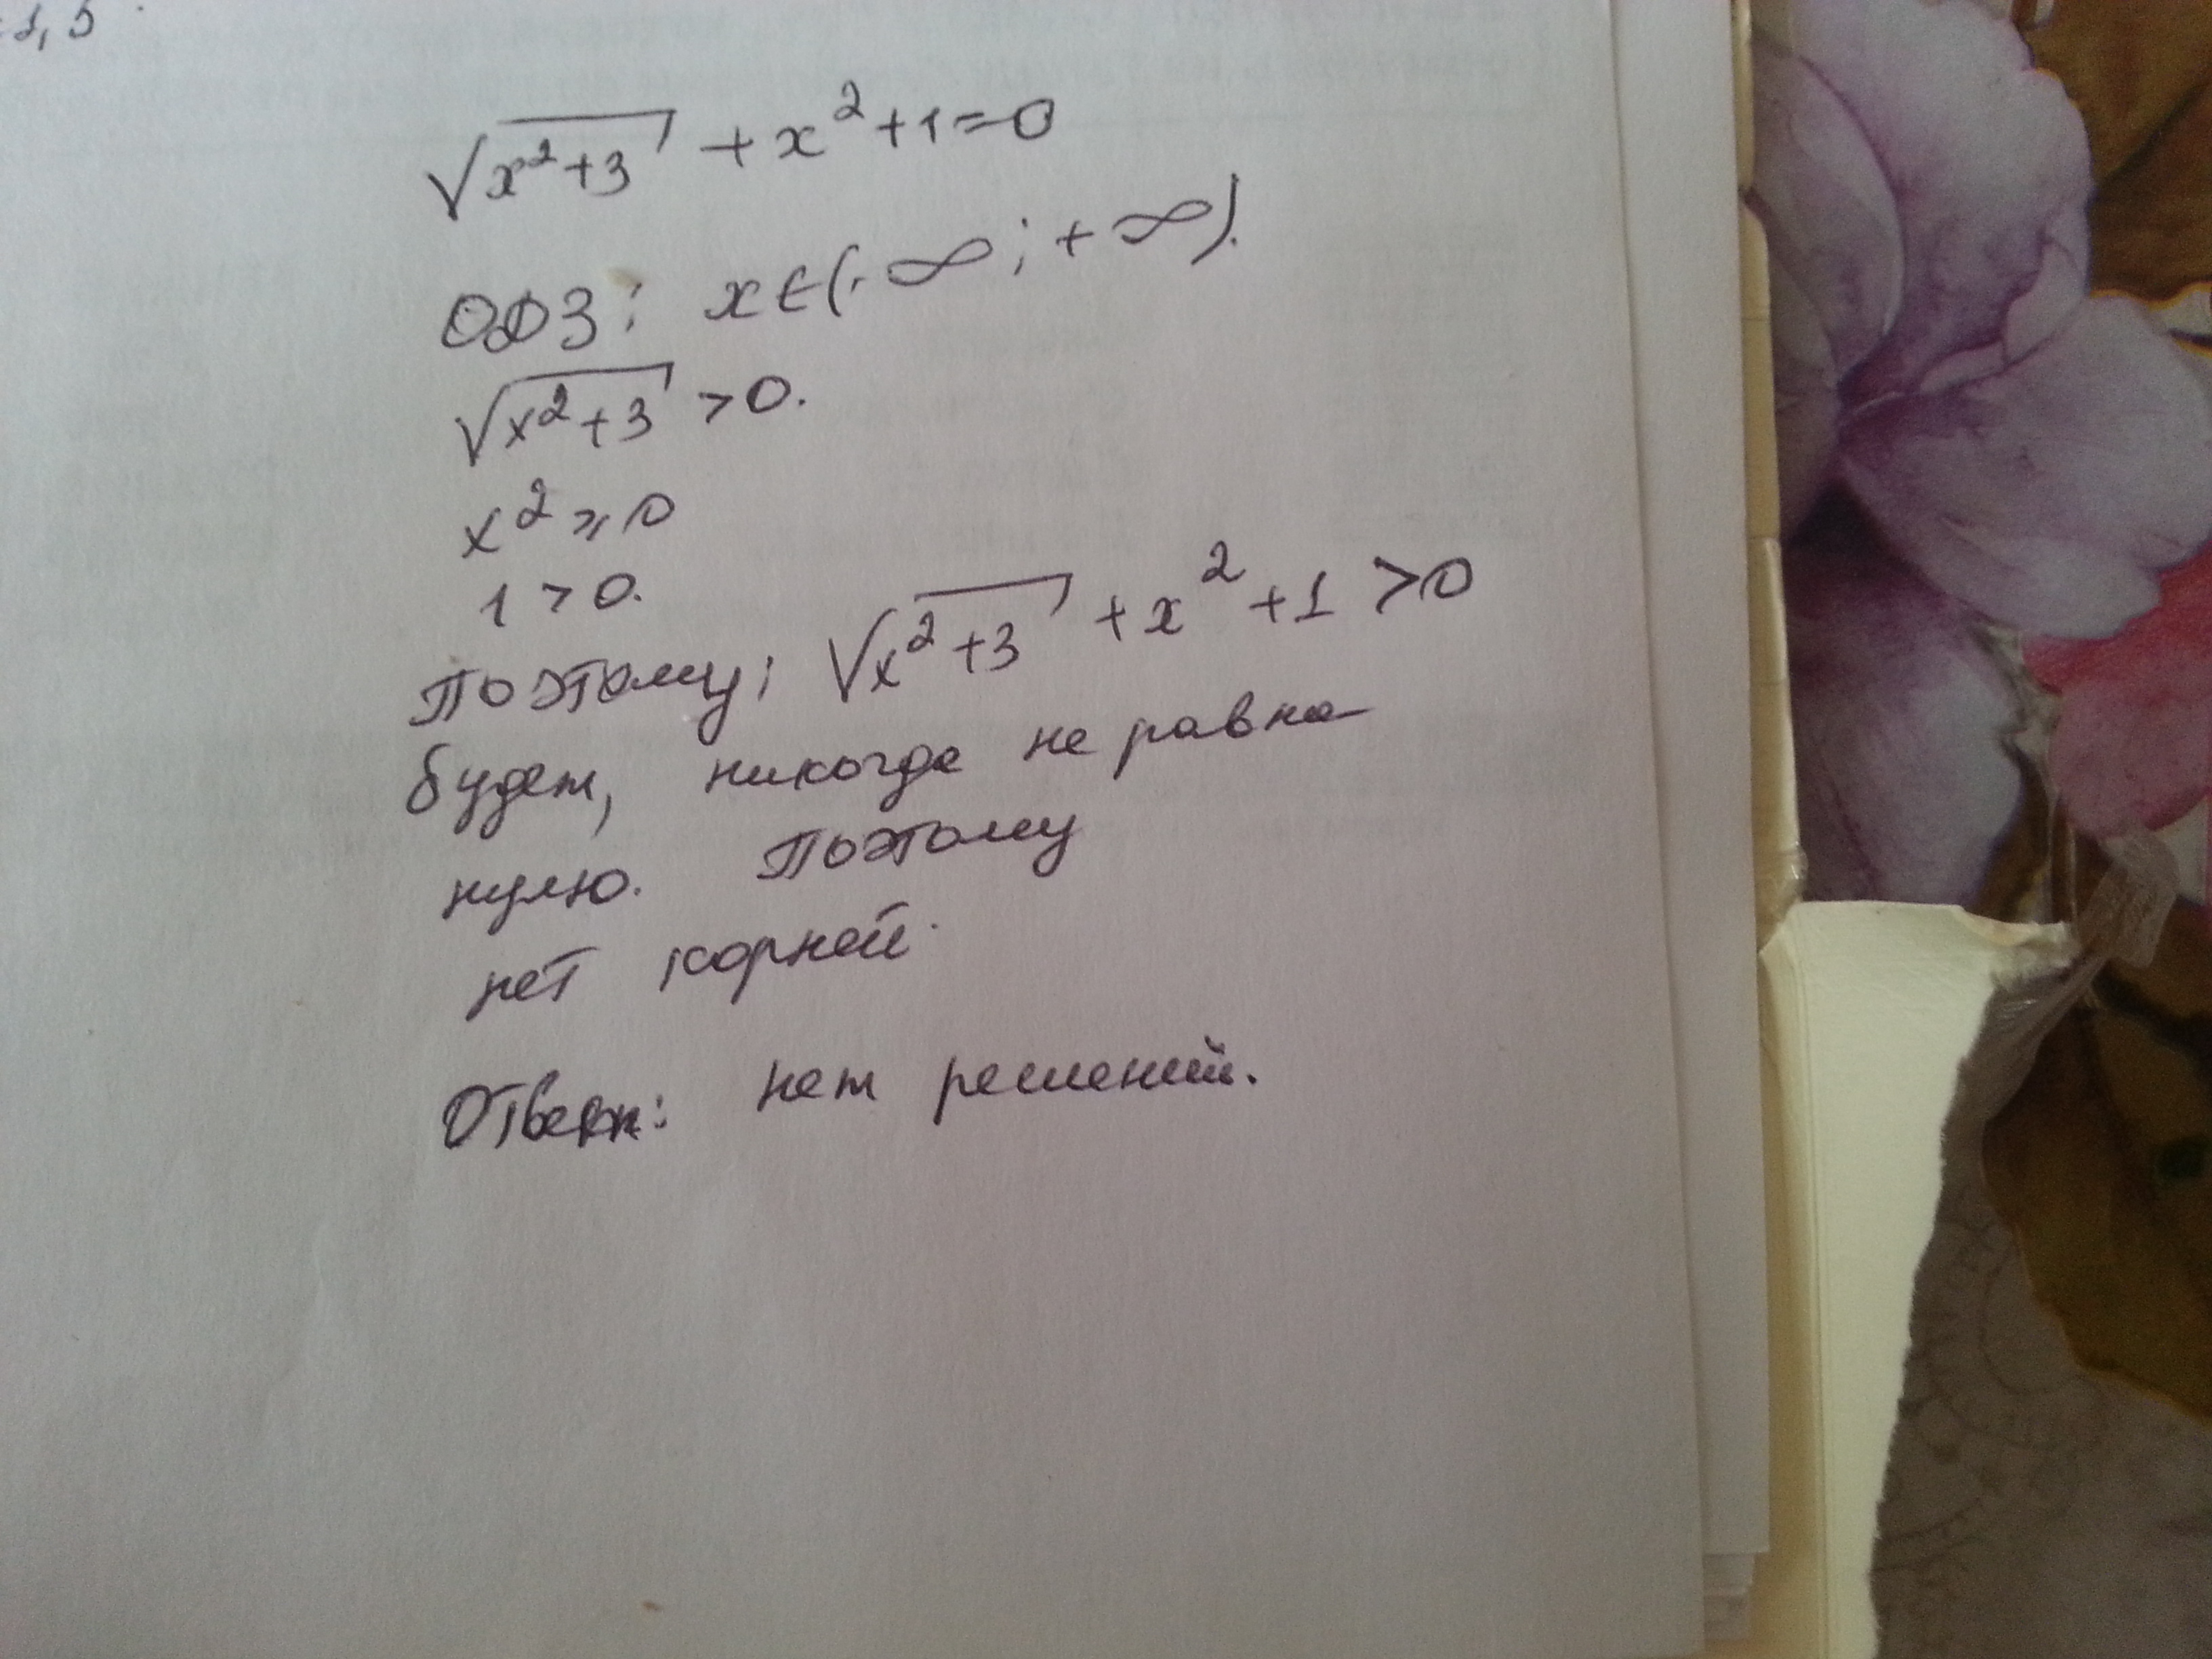 1,5
√x²+3 + x²+1=0
ОДЗ: x∈(-∞;+∞).
√x²+3 >0.
x²≥0
1>0.
Поэтому: √x²+3 +x²+1>0
будет, никогда не равна
нулю. Поэтому
нет корней.
Ответ: нет решений.